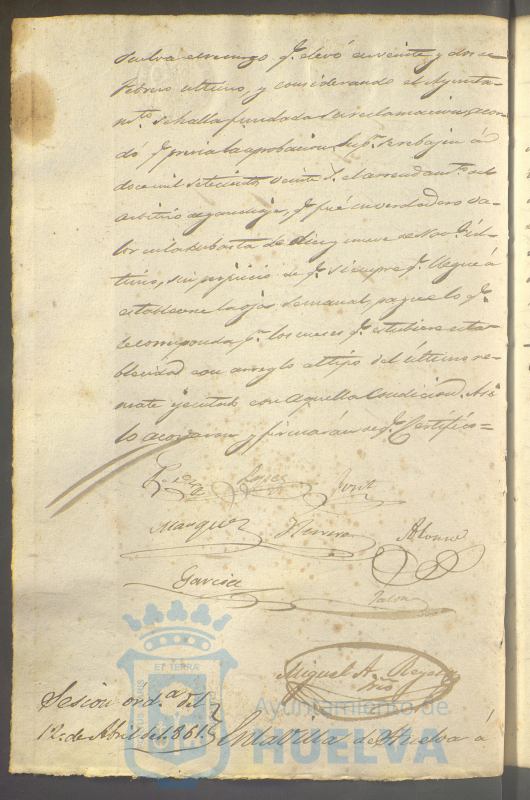 y dos de
Febrero ultimo, y considerando el Ayunta-
mto se halla fundada la reclamacion, acor-
dó q. previa la aprobacion Sup. se rebaje á
doce mil setecientos veinte r. el arrendamto del
arbitrio q. fué su verdadero va-
lor en la subasta de diez y nueve de Nov. úl-
timo, sin perjuicio de q. siempre q. llegue á
establecerse la semanal, pague lo q.
le corresponda pr. los meses q. estubiere esta-
blecida con arreglo al tipo del último re-
mate con aquella condicion. Asi
lo acordaron y firmarán de q. Certifico=
Lopez
Marquez Herrera Alonso
Garcia
Miguel A. Reyes
Srio
Sesion ord.ª del
12 de Abril de 1.861.
En la Villa de Huelva á
ET TERRÆ
Ayuntamiento de
HUELVA